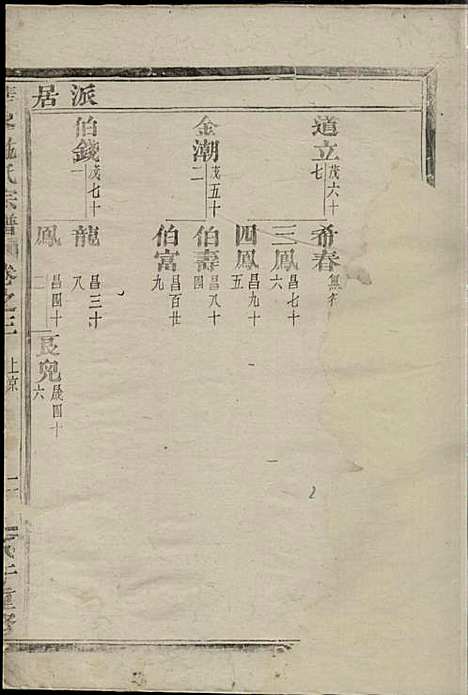 派居
道立
茂六十七
希春
無
三鳳
昌七十六
四鳳
昌九十五
金潮
茂五十二
伯壽
昌八十四
伯富
昌百廿九
伯錢
茂七十一
龍
昌三十八
鳳
昌四十二
長兜
晟四十六
氏宗譜
卷之三
上京
重修